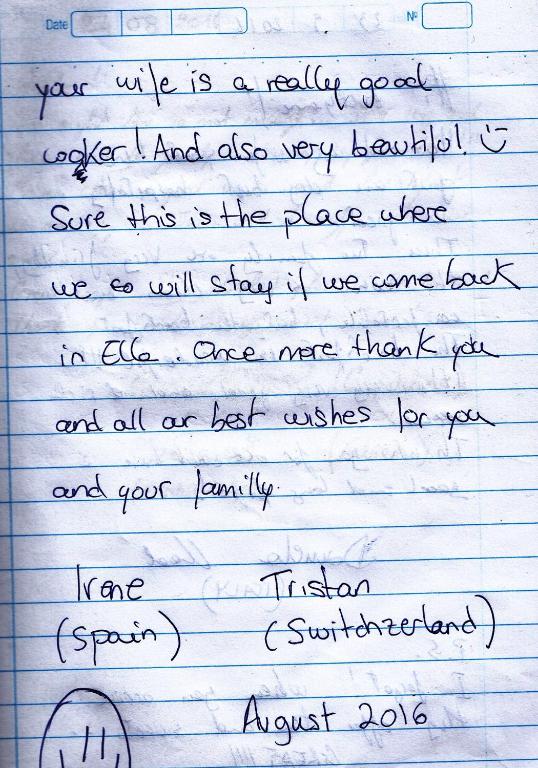 Date
Nº
your wife is a really good
cooker! And also very beautiful!
Sure this is the place where
we so will stay if we come back
in Ella. Once more thank you
and all our best wishes for you
and your familly.
Irene Tristan
(Spain) (Switchzerland)
August 2016